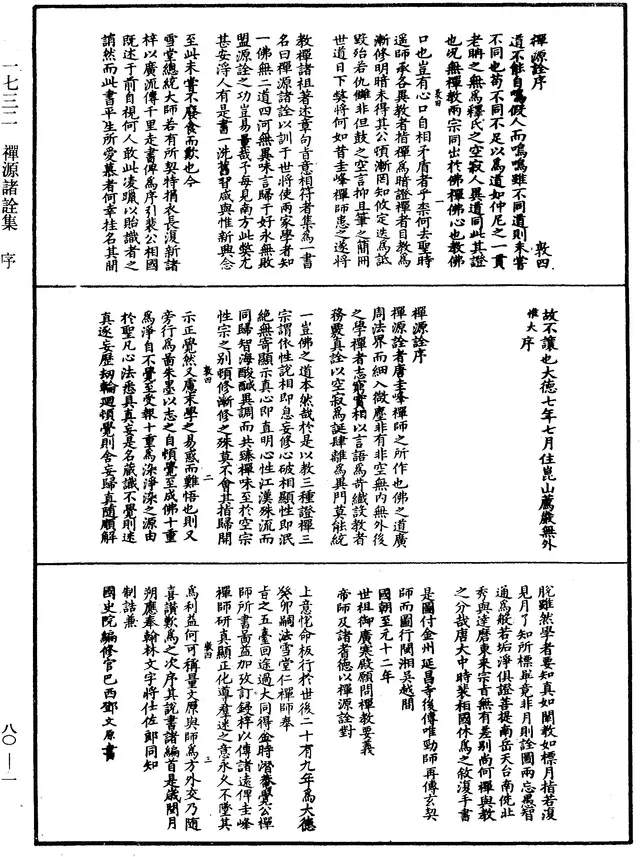 禪源詮序　　　　　敦四
道不能自鳴假人而鳴鳴雖不同道則未嘗
不同也苟不同不足以為道如仲尼之一貫
老聃之無為釋氏之空寂人異道同此其證
也況無禪教兩宗同出於佛禪佛心也教佛
口也豈有心口自相矛盾者乎柰何去聖時
遥師承各異教者指禪為暗證禪者目教為
漸修明暗未得其公頓漸罔知攸定迭為詆
毀殆若仇讎非但鼓之空言抑且筆之簡冊
世道日下弊將何如昔圭峰禪師患之遂將
教禪諸祖著述章句旨意相符者集為一書
名曰禪源諸詮以訓于世將使兩家學者知
一佛無二道四河無異味言歸于好永無敗
盟源詮之功豈易量哉予每見南方此弊尤
甚安得人有是書一洗舊習咸與惟新興念
至此未嘗不廢食而歎也今
雪堂總統大師若有所契特捐衣長復新諸
梓以廣流傳千里走書俾為序引裴公相國
既述于前自視何人敢此凌躐以貽識者之
誚然而此書平生所愛慕者何幸挂名其間
故不讓也大德七年七月住崑山薦嚴無外
惟大序
禪源詮序
禪源詮者唐圭峰禪師之所作也佛之道廣
周法界而細入微塵非有非空無內無外後
之學禪者志窮實相以言語為奇纖設教者
務覈真詮以空寂為誕肆離為異門莫能統
一豈佛之道本然哉於是以教三種證禪三
宗謂依性說相即息妄修心破相顯性即泯
絕無寄顯示真心即直明心性江漢殊流而
同歸智海酸鹹異調而共臻禪味至於空宗
性宗之別頓修漸修之殊莫不會其指歸開
示正覺然又慮末學之易惑而難悟也則又
旁行為啚朱墨以志之自頓覺至成佛十重
為淨自不覺至受報十重為染淨染之源由
於聖凡心法悉具真妄是名藏識不覺則迷
真逐妄歷劫輪迴頓覺則舍妄歸真隨順解
脫雖然學者要知真如聞教如標月指若復
見月了知所標畢竟非月則詮圖兩忘愚智
通為般若垢淨俱證菩提南岳天台南侁北
秀與達磨東來宗旨無有差別尚何禪與教
之分哉唐大中時裴相國休為之敘復手書
是圖付金州延昌寺後傳唯勁師再傳玄契
師而圖行閩湘吳越間
國朝至元十二年
世祖御廣寒殿顧問禪教要義
帝師及諸耆德以禪源詮對
上意悅命板行於世後二十有九年為大德
癸卯嗣法雪堂仁禪師奉
旨之五臺回途過大同得金時潛菴覺公禪
師所書啚益加攷訂鋟梓以傳諸遠俾圭峰
禪師研真顯正化導羣迷之意永久不墜其
為利益何可稱量文原與師為方外交乃隨
喜讚歎為之次序其說書諸編首是歲閏月
朔應奉翰林文字將仕佐郎同知
制誥兼
國史院編修官巴西鄧文原書
敦四　一
敦四　二
敦四　三
一七三二　禪源諸詮集　序
八〇—一